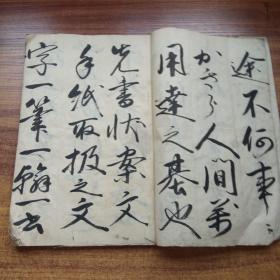 途不何事
かさら人間萬
用達之基也
先書状案文
手紙取扱之文
字一筆一翰一書